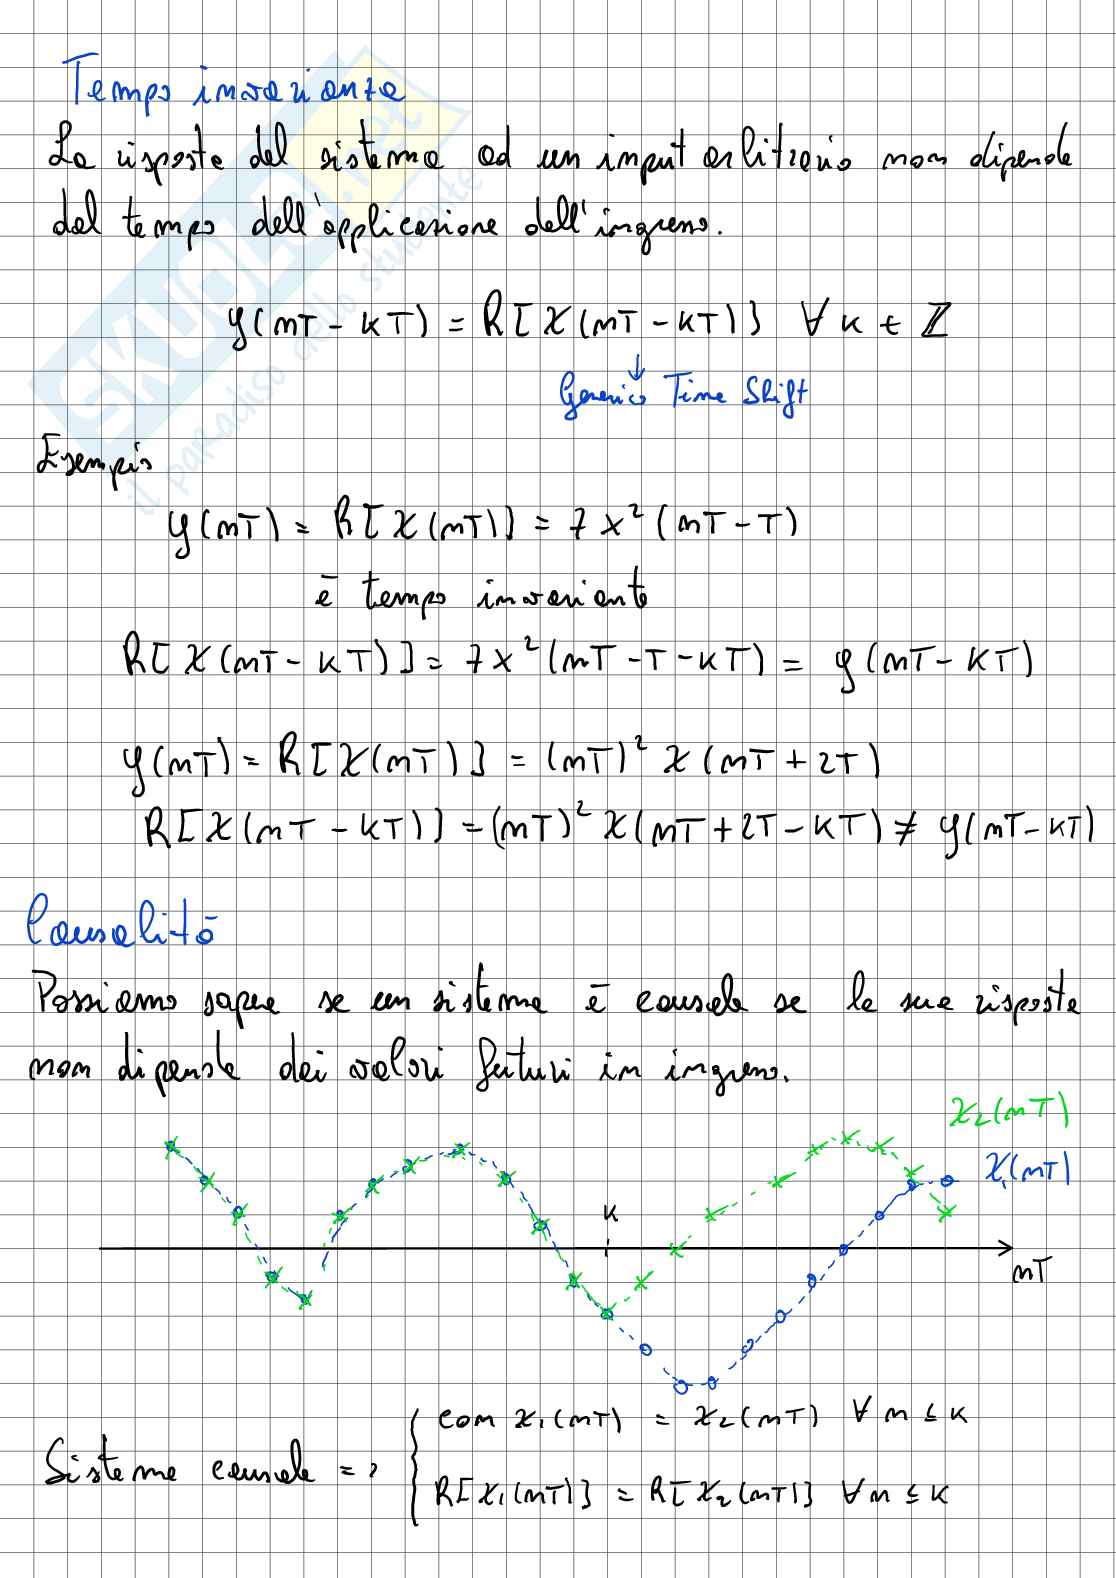 Tempo invarianza
La risposta del sistema ad un input arbitrario non dipende
dal tempo dell'applicazione dell'ingresso.
y(nT - kT) = R[x(nT - kT)] ∀ k ∈ ℤ
↓
Generico Time Shift
Esempio
y(nT) = R[x(nT)] = 7x²(nT - T)
è tempo invariante
R[x(nT - kT)] = 7x²(nT - T - kT) = y(nT - kT)
y(nT) = R[x(nT)] = (nT)² x(nT + 2T)
R[x(nT - kT)] = (nT)² x(nT + 2T - kT) ≠ y(nT - kT)
Causalità
Possiamo sapere se un sistema è causale se la sua risposta
non dipende dai valori futuri in ingresso.
x₂(nT)
x₁(nT)
k
nT
Sistema causale => { con x₁(nT) = x₂(nT) ∀ n ≤ k
R[x₁(nT)] = R[x₂(nT)] ∀ n ≤ k
SKUOLA.net
il paradiso dello studente